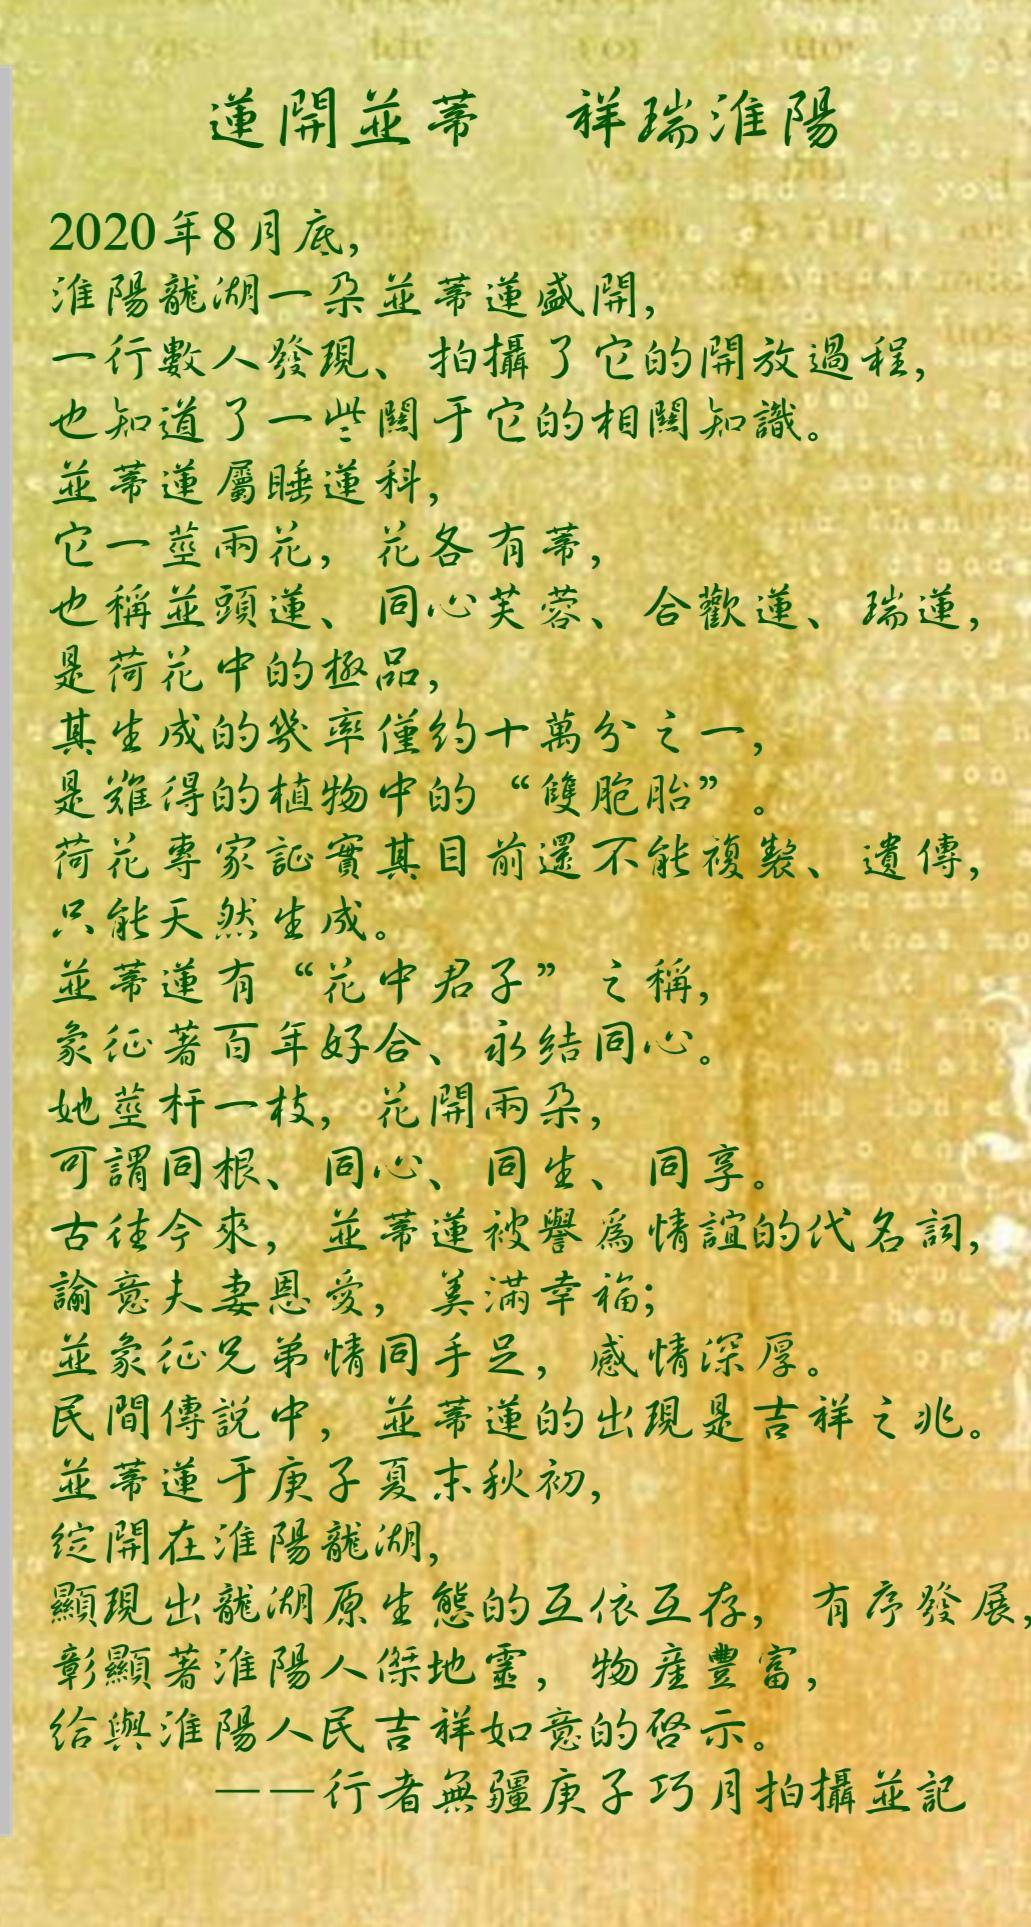 蓮開並蒂 祥瑞淮陽
2020年8月底,
淮陽龍湖一朵並蒂蓮盛開,
一行數人發現、拍攝了它的開放過程,
也知道了一些關于它的相關知識。
並蒂蓮屬睡蓮科,
它一莖兩花,花各有蒂,
也稱並頭蓮、同心芙蓉、合歡蓮、瑞蓮,
是荷花中的極品,
其生成的幾率僅約十萬分之一,
是難得的植物中的“雙胞胎”。
荷花專家証實其目前還不能複製、遺傳,
只能天然生成。
並蒂蓮有“花中君子”之稱,
象征著百年好合、永結同心。
她莖杆一枝,花開兩朵,
可謂同根、同心、同生、同享。
古往今來,並蒂蓮被譽爲情誼的代名詞,
諭意夫妻恩愛,美滿幸福;
並象征兄弟情同手足,感情深厚。
民間傳説中,並蒂蓮的出現是吉祥之兆。
並蒂蓮于庚子夏末秋初,
綻開在淮陽龍湖,
顯現出龍湖原生態的互依互存,有序發展,
彰顯著淮陽人傑地靈,物産豐富,
給與淮陽人民吉祥如意的啓示。
——行者無疆庚子巧月拍攝並記